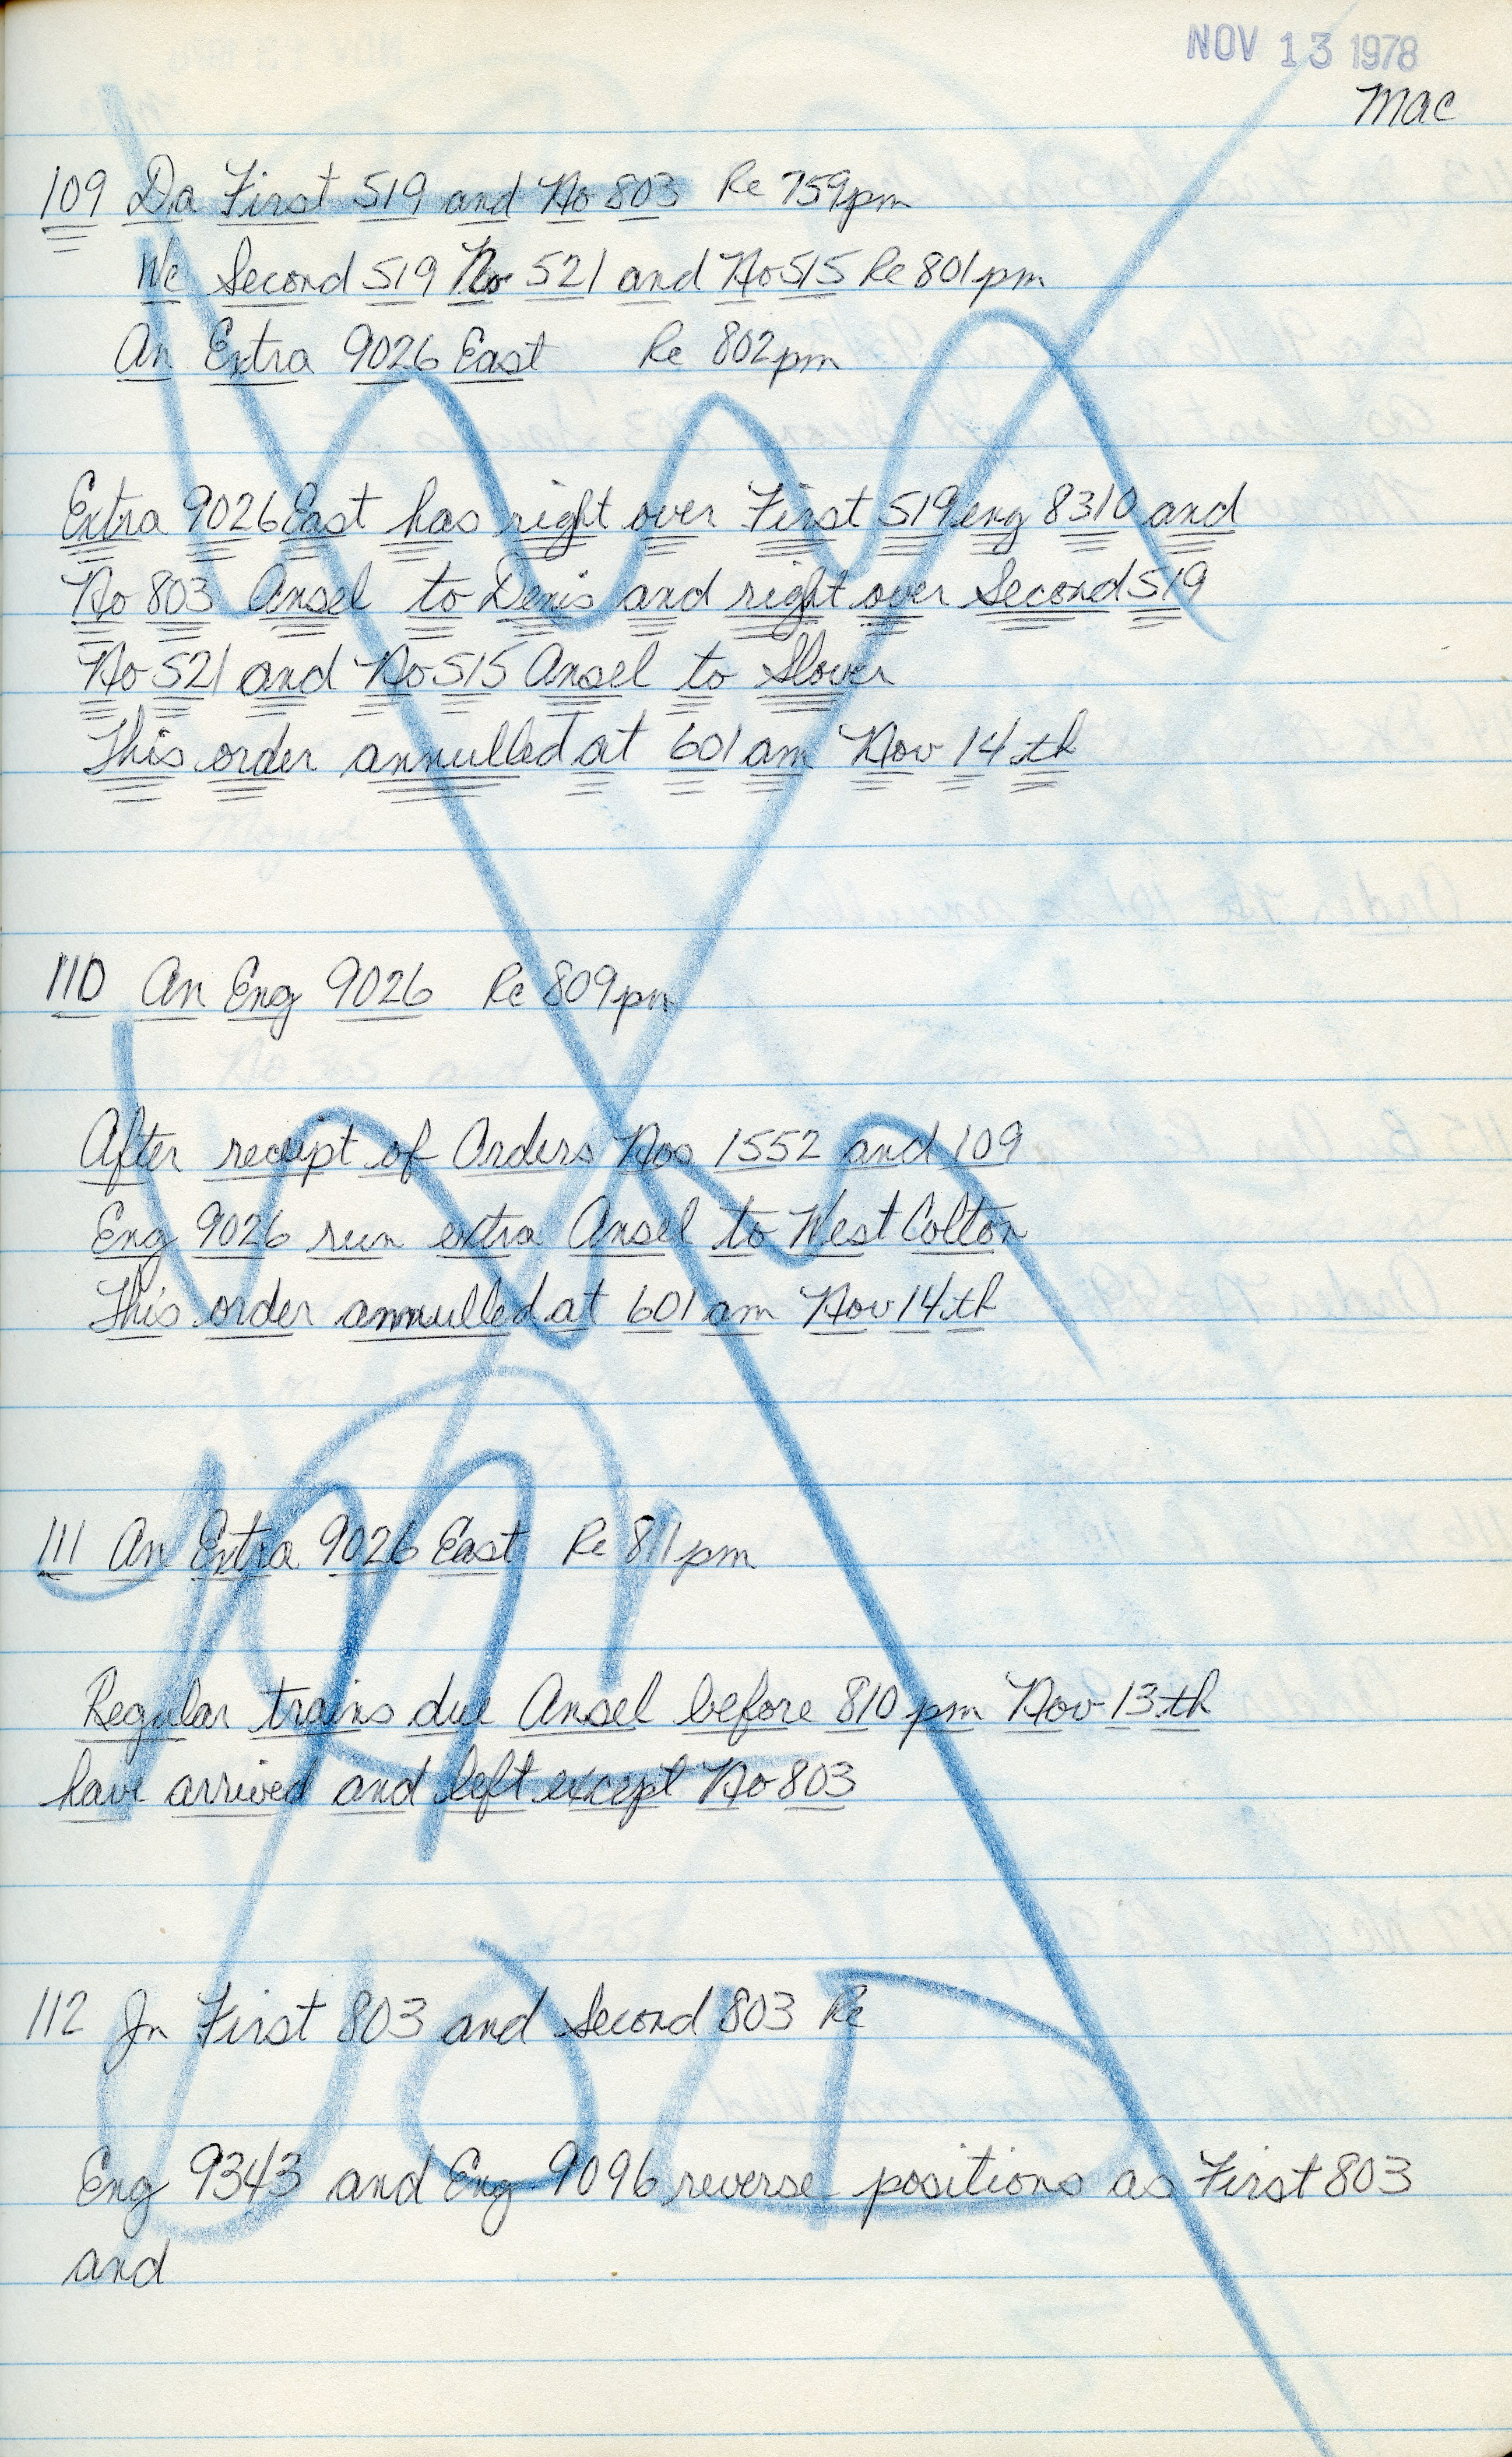 NOV 13 1978
Mac
109 Da First 519 and No 803 Re 759pm
Wc Second 519 No 521 and No 515 Re 801pm
An Extra 9026 East Re 802pm
Extra 9026 East has right over First 519 eng 8310 and
No 803 Ansel to Denis and right over Second 519
No 521 and No 515 Ansel to Slover
This order annulled at 601 am Nov 14th
110 An Eng 9026 Re 809pm
After receipt of Orders Nos 1552 and 109
Eng 9026 run extra Ansel to West Colton
This order annulled at 601 am Nov 14th
111 An Extra 9026 East Re 811pm
Regular trains due Ansel before 810 pm Nov 13th
have arrived and left except No 803
112 Jn First 803 and Second 803 Re
Eng 9343 and Eng 9096 reverse positions as First 803
and